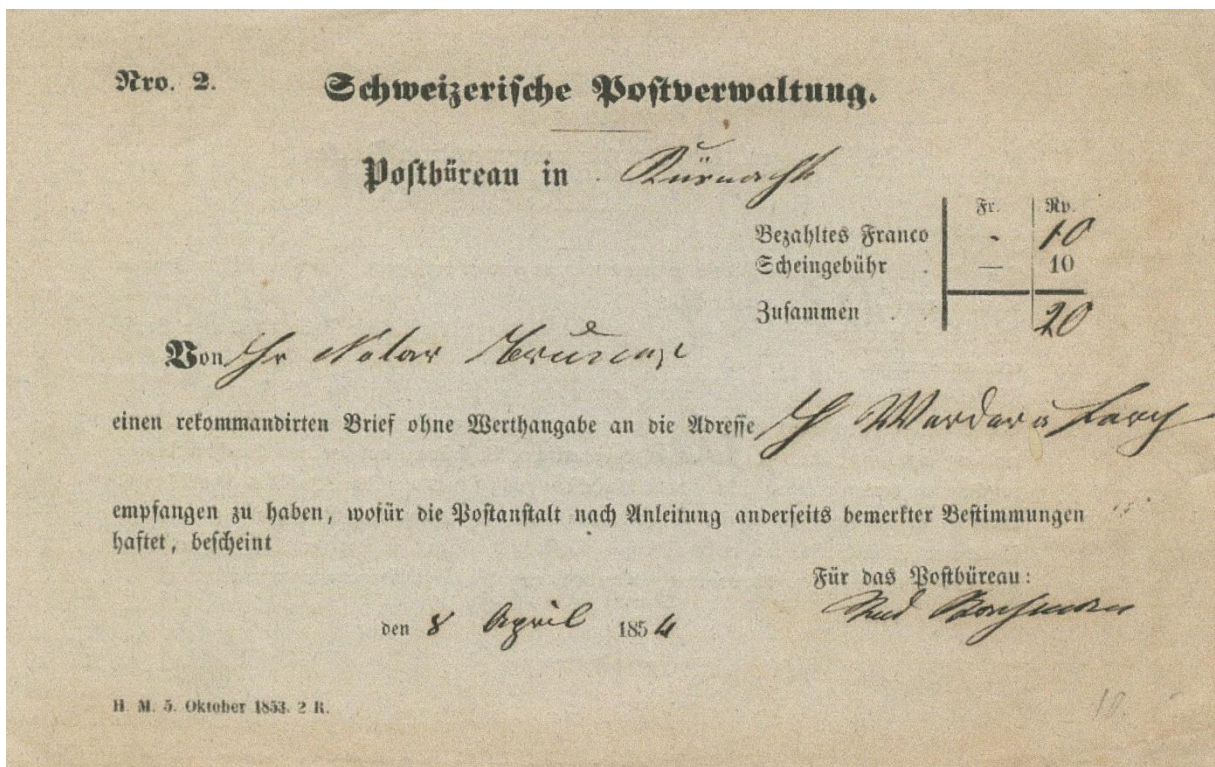 Nro. 2. Schweizerische Postverwaltung.
Postbüreau in Küsnacht
Fr. Rp.
Bezahltes Franco - 10
Scheingebühr . — 10
Zusammen . . 20
Von Hr Notar
einen rekommandirten Brief ohne Werthangabe an die Adresse
empfangen zu haben, wofür die Postanstalt nach Anleitung anderseits bemerkter Bestimmungen
haftet, bescheint
Für das Postbüreau:
den 8 April 1854
H. M. 5. Oktober 1853. 2 R.
10.